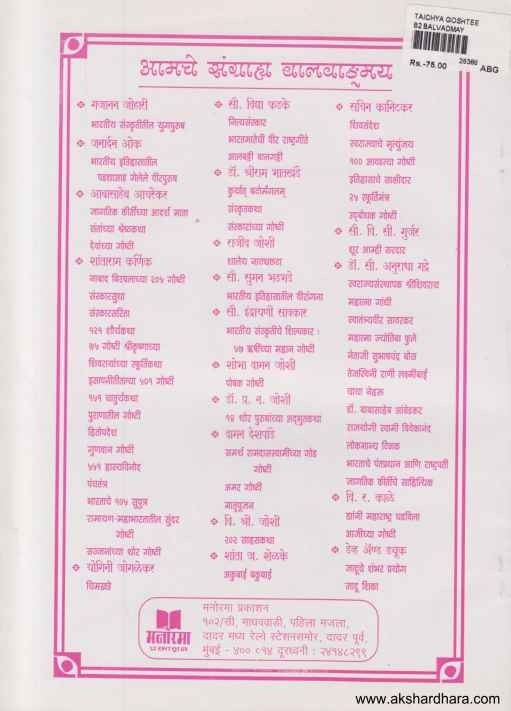 TAICHYA GOSHTEE
B2 BALVADMAY
Rs.-75.00
25360
ABG
आमचे संग्राह्य बालवाङ्मय
❖ गजानन जोहारी
भारतीय संस्कृतीतील युगपुरुष
❖ जनार्दन ओक
भारतीय इतिहासातील
पडद्याआड गेलेले वीरपुरुष
❖ आबासाहेब आचरेकर
जागतिक कीर्तीच्या आदर्श माता
संतांच्या श्रेष्ठकथा
देवांच्या गोष्टी
❖ शांताराम कर्णिक
नाबाद बिरबलाच्या २०५ गोष्टी
संस्कारसुधा
संस्कारसरिता
१२१ शौर्यकथा
७५ गोष्टी श्रीकृष्णाच्या
शिवरायांच्या स्फूर्तिकथा
इसापनीतीतल्या ५०१ गोष्टी
१५१ चातुर्यकथा
पुराणातील गोष्टी
हितोपदेश
गुणवान गोष्टी
५५१ हास्यविनोद
पंचतंत्र
भारताचे १०५ सुपुत्र
रामायण-महाभारतातील सुंदर
गोष्टी
सज्जनांच्या थोर गोष्टी
❖ योगिनी जोगळेकर
चिमखडे
❖ सौ. विद्या फडके
नित्यसंस्कार
भारतमातेची वीर राष्ट्रगीते
आलबट्टी बालगट्टी
❖ डॉ. श्रीराम भातखंडे
कुर्यात् बटोर्मंगलम्
संस्कृतकथा
संस्कारांच्या गोष्टी
❖ राजीव जोशी
शालेय नाट्यछटा
❖ सौ. सुमन भडभडे
भारतीय इतिहासातील वीरांगना
❖ सौ. इंद्रायणी सावकार
भारतीय संस्कृतीचे शिल्पकार :
५७ ऋषींच्या महान गोष्टी
❖ शोभा वामन जोशी
पोषक गोष्टी
❖ डॉ. प्र. न. जोशी
१४ थोर पुरुषांच्या अद्भुतकथा
❖ वामन देशपांडे
समर्थ रामदासस्वामींच्या गोड
गोष्टी
अमर गोष्टी
मातृपूजन
❖ वि. श्री. जोशी
२०२ साहसकथा
❖ शांता ज. शेळके
अकुबाई बकुबाई
❖ सचिन कानिटकर
शिवसंदेश
स्वराज्याचे मृत्युंजय
१०० आवडत्या गोष्टी
इतिहासाचे साक्षीदार
२५ स्फूर्तिमंत्र
उद्बोधक गोष्टी
❖ सौ. वि. सी. गुर्जर
शूर आम्ही सरदार
❖ डॉ. सौ. अनुराधा गद्रे
स्वराज्यसंस्थापक श्रीशिवराय
महात्मा गांधी
स्वातंत्र्यवीर सावरकर
महात्मा ज्योतिबा फुले
नेताजी सुभाषचंद्र बोस
तेजस्विनी राणी लक्ष्मीबाई
चाचा नेहरू
डॉ. बाबासाहेब आंबेडकर
राजयोगी स्वामी विवेकानंद
लोकमान्य टिळक
भारताचे पंतप्रधान आणि राष्ट्रपती
जागतिक कीर्तीचे साहित्यिक
❖ वि. र. काळे
ह्यांनी महाराष्ट्र घडविला
आजीच्या गोष्टी
❖ डेव्ह अँण्ड ड्यूक
जादूचे शंभर प्रयोग
जादू शिका
मनोरमा
प्रकाशन
मनोरमा प्रकाशन
१०२/सी, माधववाडी, पहिला मजला,
दादर मध्य रेल्वे स्टेशनसमोर, दादर पूर्व,
मुंबई - ४०० ०१४ दूरध्वनी : २४१४८२९९
www.akshardhara.com